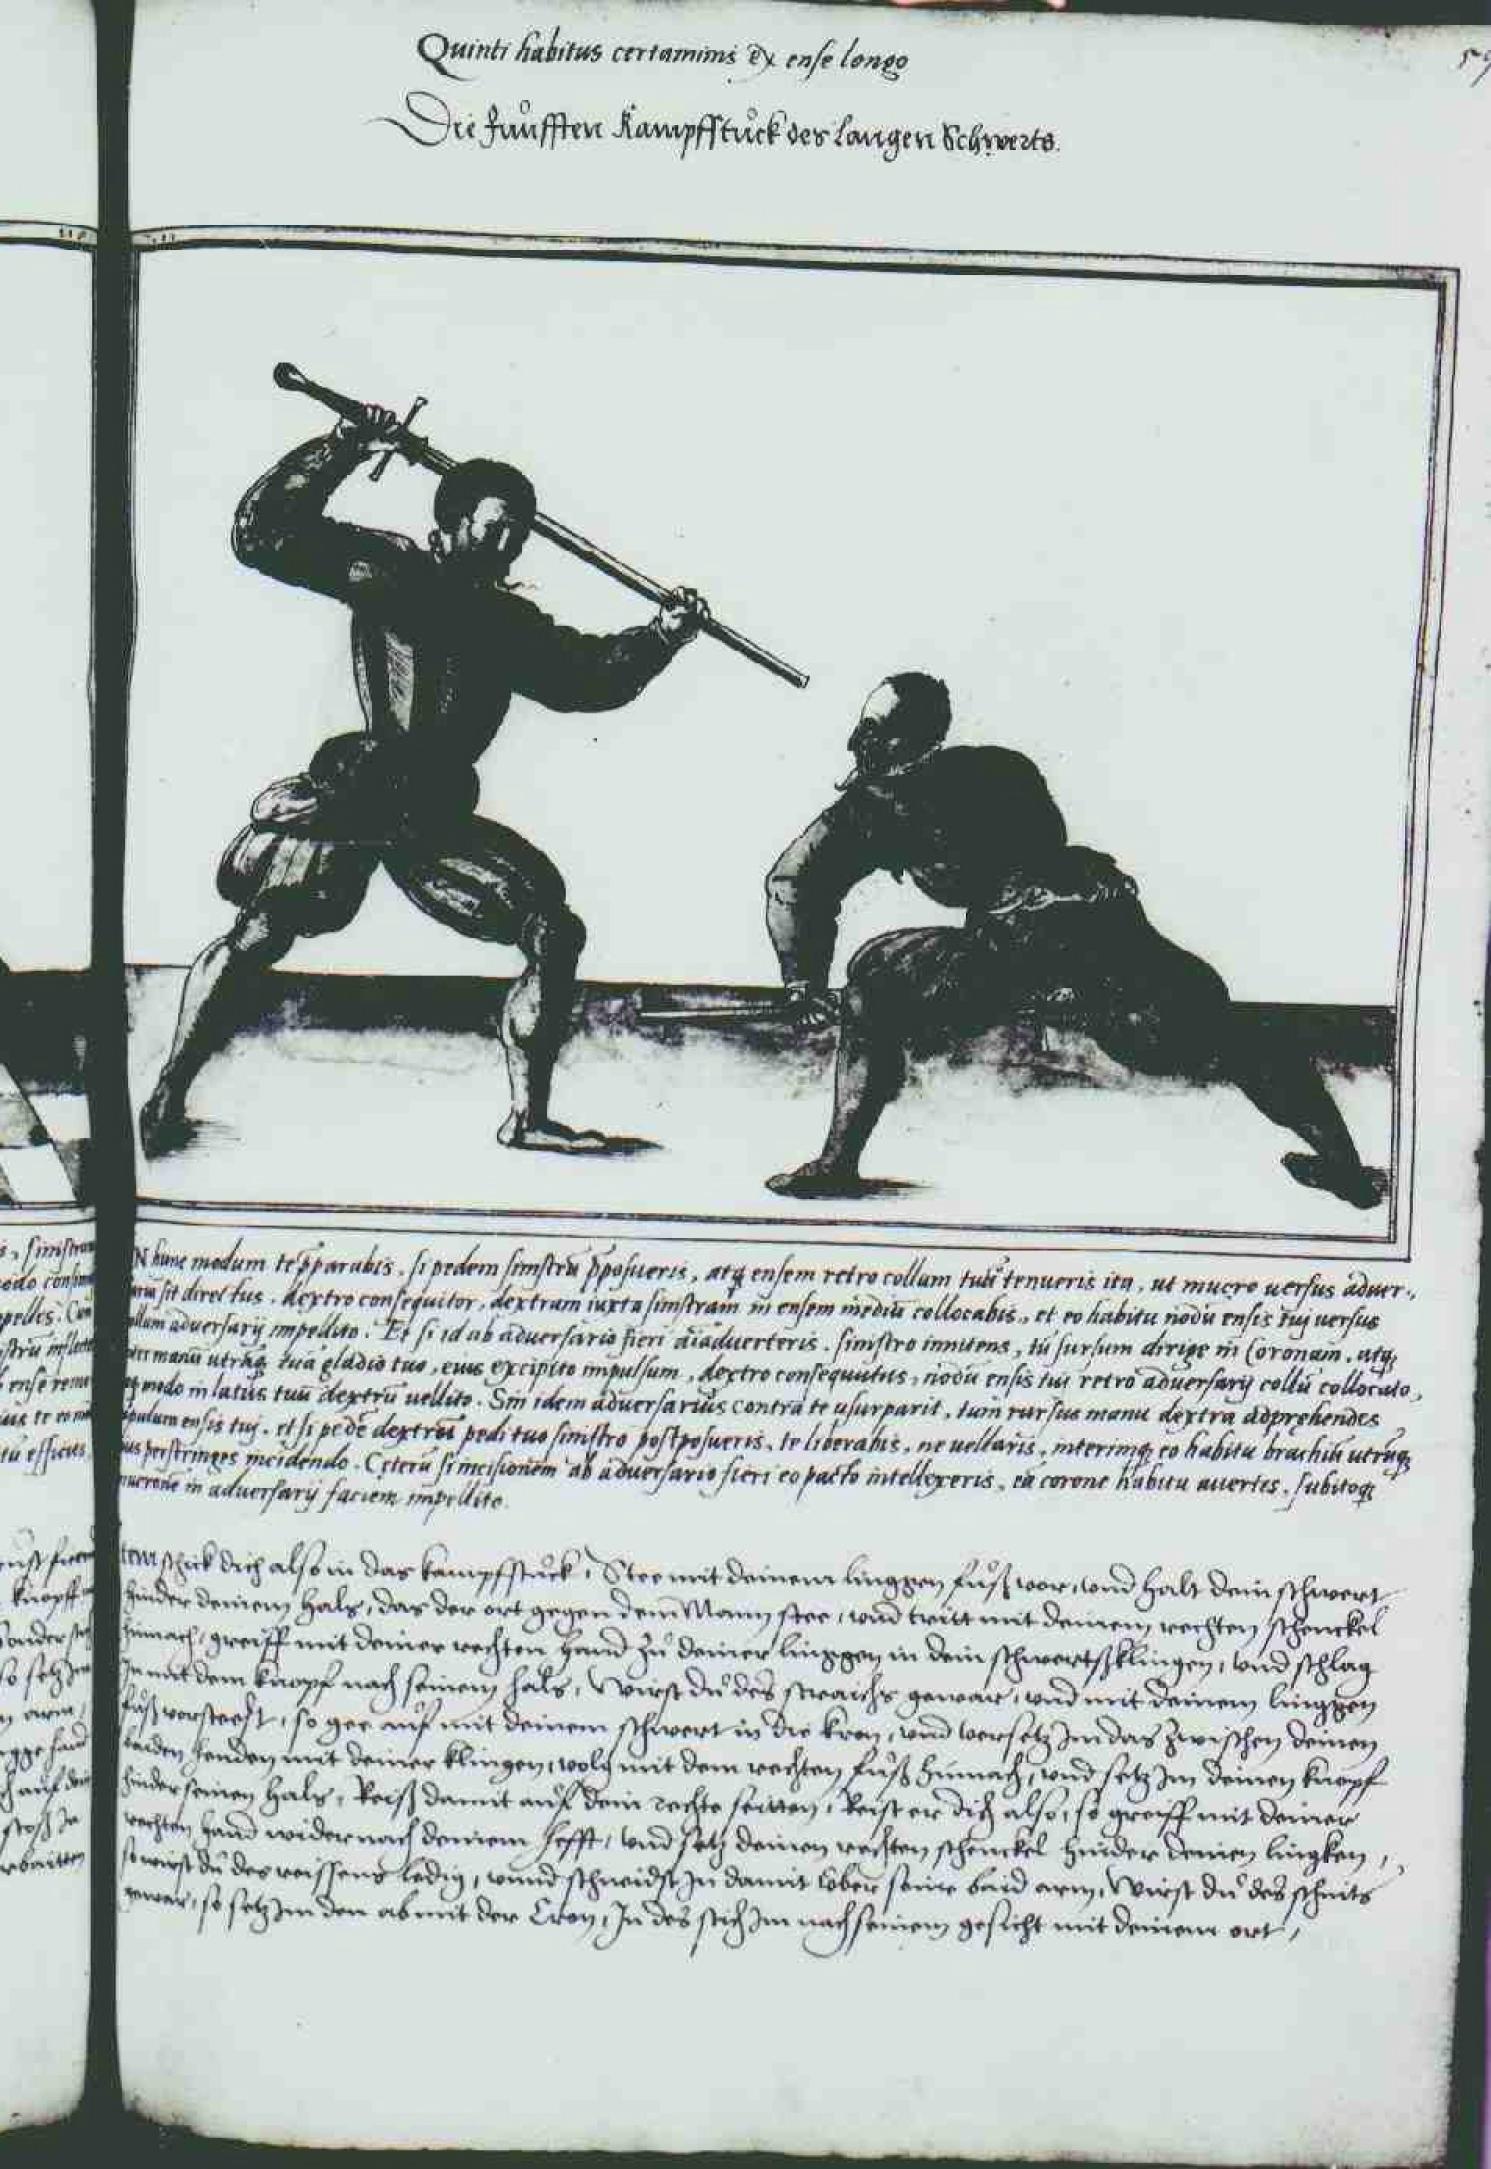 Quinti habitus certaminis ex ense longo
59
Die fünfften Kampfstuck des Langen Schwerts.
N hunc modum te pparabis. si pedem sinistrū pposueris, atq ensem retro collum tuū tenueris ita, ut mucro uersus aduer-
ariū sit directus. dextro consequitor, dextram iuxta sinistram in ensem mediū collocabis, et eo habitu nodū ensis tuj uersus
ollum aduersarij impellito. Et si id ab aduersario fieri aīaduerteris. sinistro innitens, tū sursum dirige in Coronam, utq
inter manū utráq tuā gladio tuo, eius excipito impulsum, dextro consequutus, nodū ensis tui retro aduersarij collū collocato,
eq modo in latus tuū dextrū uellito. Sin idem aduersarius contra te usurparit, tum rursus manu dextra adprehendes
apulum ensis tuj, et si pedē dextrū pedi tuo sinistro postposueris, te liberabis, ne uellaris, interimq eo habitu brachiū utrūq
ius perstringes incidendo. Ceterū si incisionem ab aduersario fieri eo pacto intellexeris, eā corone habitu auertes, subitoq
mucrone in aduersarij faciem impellito.
tem schick dich also in das kampfstuck, Stee mit deinem linggen fuß vor, vnd halt dein schwert
hinder deinem hals, das der ort gegen dem Mann stee, vnd tritt mit deinem rechten schenckel
hinnach, greiff mit deiner rechten hand zu deiner linggen in dein schwertsklingen, vnd schlag
In mit dem knopf nach seinem hals, Wirst du des straichs gewar, vnd mit deinem linggen
fuß vorsteest, so gee auf mit deinem schwert in die kron, vnd versetz Im das zwischen deinen
baiden henden mit deiner klingen, volg mit dem rechten fuß hinnach, vnd setz Im deinen knopf
hinder seinen hals, Reiß damit auf dein rechte seitten, Reist er dich also, so greiff mit deiner
rechten hand wider nach deinem hefft, vnd setz deinen rechten schenckel hinder deinen lingken,
so wirst du des reissens ledig, vnnd schneidst In damit vber seine baid arm, Wirst du des schnits
gewar, so setz Im den ab mit der Cron, In des stich Im nach seinem gesicht mit deinem ort,